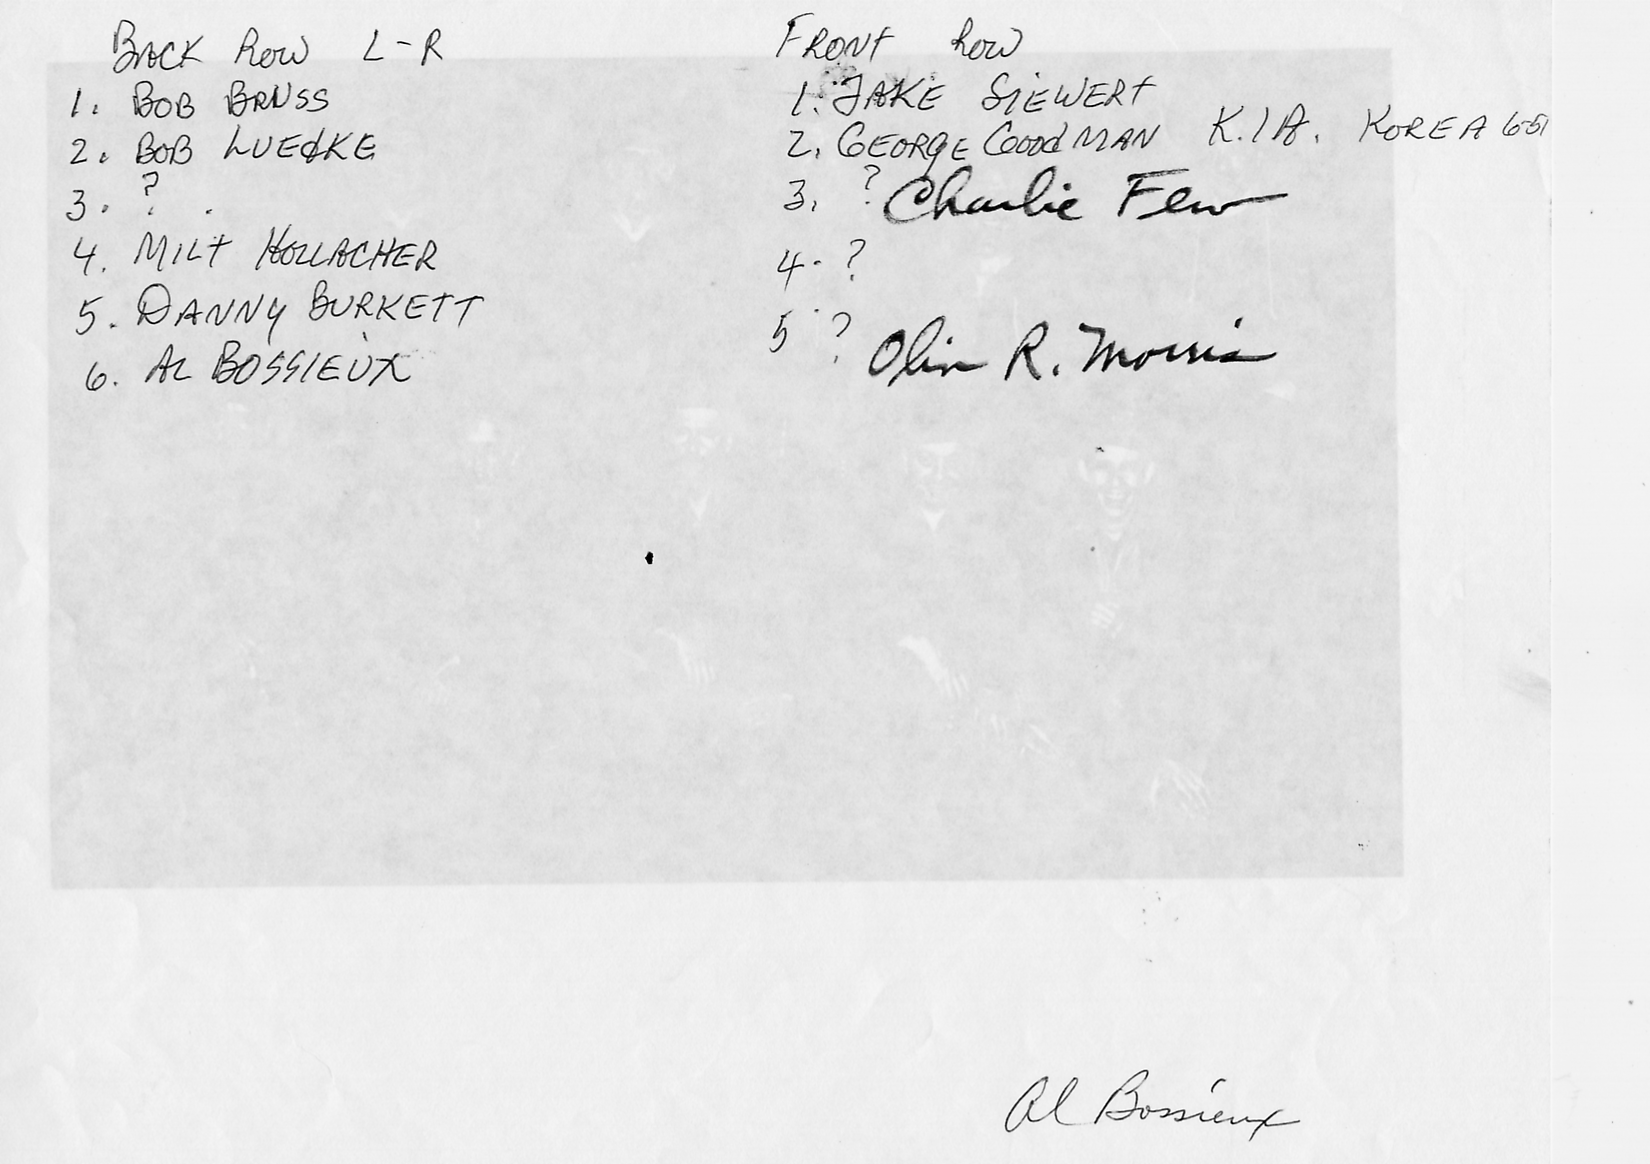 BACK ROW L-R
1. BOB BRUSS
2. BOB LUEDKE
3. ?
4. MILT HOLLACHER
5. DANNY BURKETT
6. AL BOSSIEUX
FRONT ROW
1. JAKE SIEWERT
2. GEORGE GOODMAN K.I.A. KOREA 6-51
3. ? Charlie Few
4. ?
5 ? Olin R. Morris
Al Bossieux